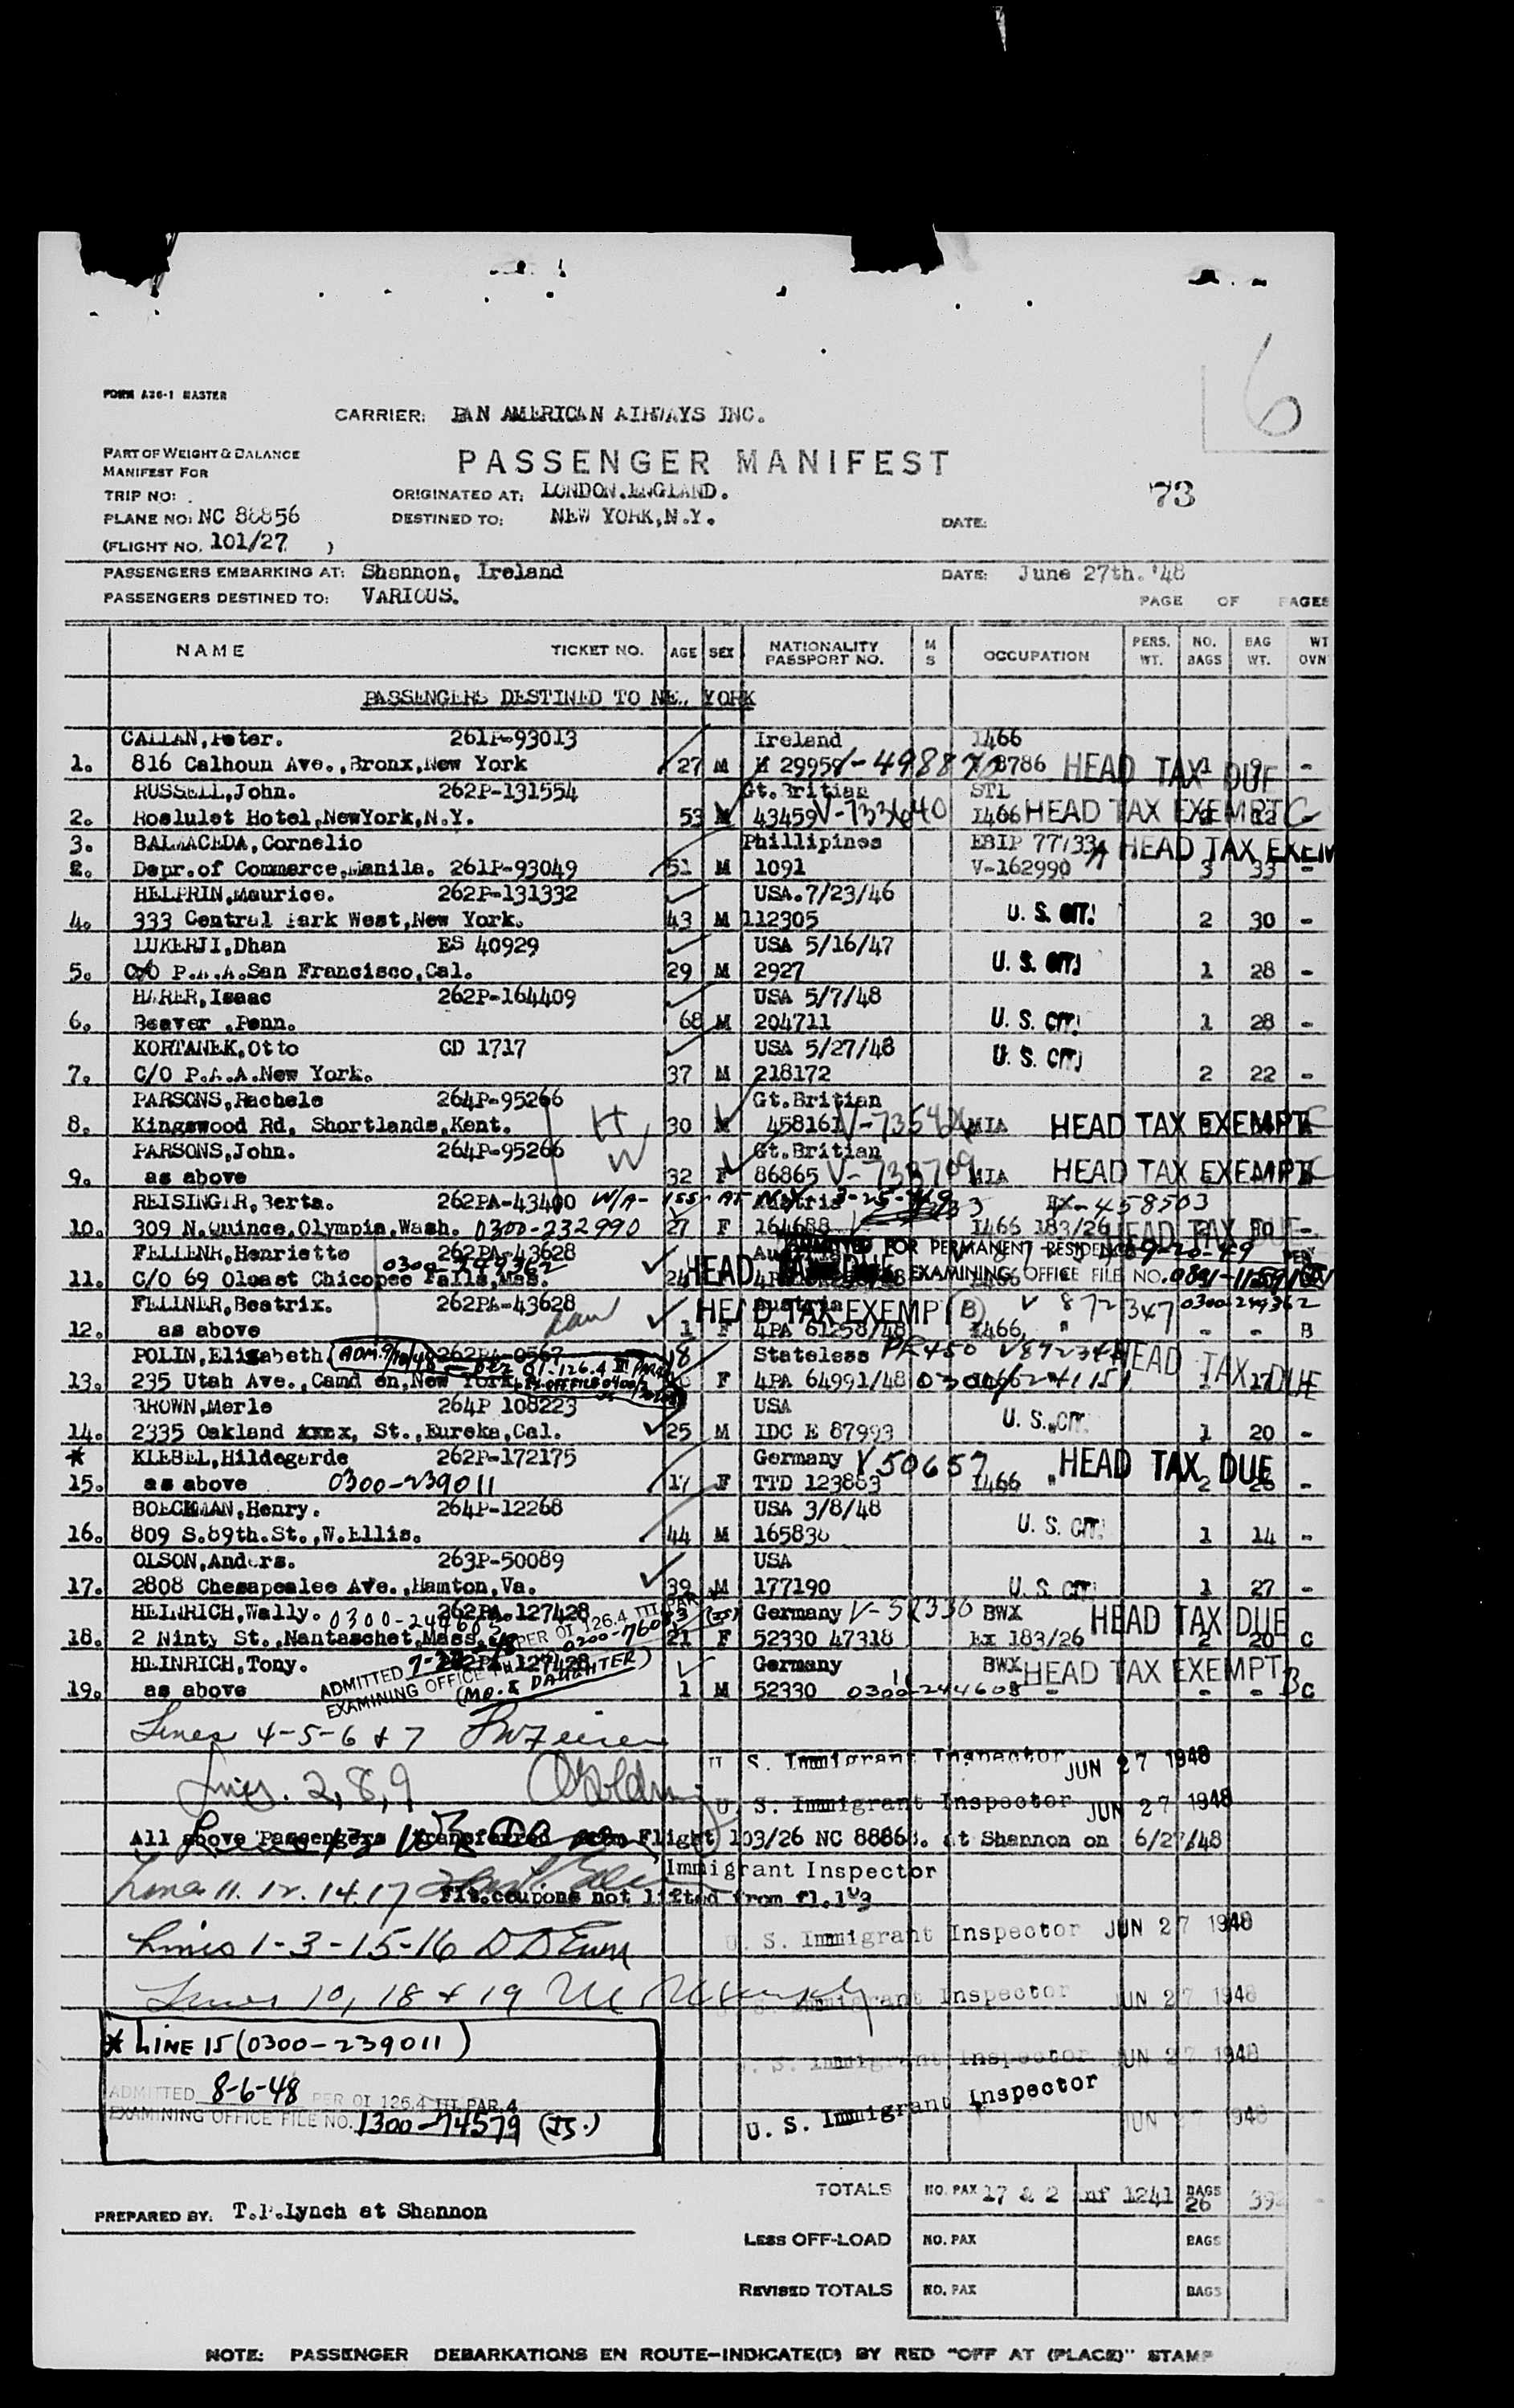 6
FORM A36-1 MASTER
CARRIER: PAN AMERICAN AIRWAYS INC.
PART OF WEIGHT & BALANCE
MANIFEST FOR
PASSENGER MANIFEST
TRIP NO:
ORIGINATED AT: LONDON.ENGLAND.
73
PLANE NO: NC 88856
DESTINED TO: NEW YORK,N.Y.
DATE:
(FLIGHT NO. 101/27 )
PASSENGERS EMBARKING AT: Shannon, Ireland
DATE: June 27th.'48
PASSENGERS DESTINED TO: VARIOUS.
PAGE OF PAGES
NAME TICKET NO. AGE SEX NATIONALITY PASSPORT NO. M S OCCUPATION PERS. WT. NO. BAGS BAG WT. WT OVN
PASSENGERS DESTINED TO NEW YORK
CALLAN,Peter. 261P-93013 Ireland 1466
1. 816 Calhoun Ave.,Bronx,New York 27 M 29959 8786 HEAD TAX DUE 1 9 -
RUSSELL,John. 262P-131554 Gt.Britian STL
2. Roslulet Hotel,NewYork,N.Y. 53 M 43459 V-733640 1466 HEAD TAX EXEMPT C
3. BALMACEDA,Cornelio Phillipines EBIP 77133 HEAD TAX EXEM
2. Depr.of Commerce,Manila. 261P-93049 51 M 1091 V-162990 3 33 -
HELPRIN,Maurice. 262P-131332 USA.7/23/46
4. 333 Central Park West,New York. 43 M 112305 U. S. CIT. 2 30 -
LUKERJI,Dhan ES 40929 USA 5/16/47
5. C/O P.A.A.San Francisco,Cal. 29 M 2927 U. S. CIT. 1 28 -
HARER,Isaac 262P-164409 USA 5/7/48
6. Beaver ,Penn. 68 M 204711 U. S. CIT. 1 28 -
KORTANEK,Otto CD 1717 USA 5/27/48
7. C/O P.A.A.New York. 37 M 218172 U. S. CIT. 2 22 -
PARSONS,Rachele 264P-95266 Gt.Britian
8. Kingswood Rd, Shortlands,Kent. H 30 M 458161 MIA HEAD TAX EXEMPT
PARSONS,John. 264P-95266 W Gt.Britian
9. as above 32 F 86865 V-733709 MIA HEAD TAX EXEMPT
REISINGER,Berta. 262PA-43400 W/A- ISS. AT N.Y. 3-25-49 EX-458503
10. 309 N.Quince,Olympia,Wash. 0300-232990 27 F 164688 1466 183/26 HEAD TAX DUE -
FELLENR,Henriette 262PA-43628 0300-249362 ADMITTED FOR PERMANENT RESIDENCE 9-20-49
11. C/O 69 Olcast Chicopee Falls,Mas. 24 HEAD TAX DUE EXAMINING OFFICE FILE NO.
FELLNER,Beatrix. 262PA-43628 HEAD TAX EXEMPT (B) V 872347 0300-249362
12. as above 1 F 4PA 61258/48 1466, " - - B
POLIN,Elizabeth 262PA-0567 18 Stateless HEAD TAX DUE
13. 235 Utah Ave.,Camd en,New York. F 4PA 64991/48
BROWN,Merle 264P 108223 USA
14. 2335 Oakland xxxx, St.,Eureka,Cal. 25 M IDC E 87993 U. S. CIT. 1 20 -
* KLEBEL,Hildegarde 262P-172175 Germany V50657 HEAD TAX DUE
15. as above 0300-239011 17 F TTD 123883 1466 " 2 26 -
BOECKMAN,Henry. 264P-12268 USA 3/8/48
16. 809 S.89th.St.,W.Ellis. 44 M 165838 U. S. CIT. 1 14 -
OLSON,Anders. 263P-50089 USA
17. 2808 Chesapealee Ave.,Hamton,Va. 39 M 177190 U. S. CIT. 1 27 -
HEINRICH,Wally. 262PA.127428 Germany V-52330 BWX HEAD TAX DUE
18. 2 Ninty St.,Nantaschet,Mass. PER OI 126.4 III PAR 21 F 52330 47318 Ex 183/26 2 20 C
HEINRICH,Tony. 262PA.127428 Germany BWX HEAD TAX EXEMPT B
19. as above ADMITTED EXAMINING OFFICE (MO. & DAUGHTER) 1 M 52330 0300-244608 - - - C
Lines 4-5-6 & 7
U. S. Immigrant Inspector JUN 27 1948
Lines. 2,8,9
U. S. Immigrant Inspector JUN 27 1948
All above Passengers transferred from Flight 103/26 NC 88868. at Shannon on 6/27/48
Immigrant Inspector
Lines 11. 12. 14. 17
Flt.coupons not lifted from fl.103
Lines 1-3-15-16
U. S. Immigrant Inspector JUN 27 1948
Lines 10, 18 & 19
U. S. Immigrant Inspector JUN 27 1948
* LINE 15 (0300-239011)
U. S. Immigrant Inspector JUN 27 1948
ADMITTED 8-6-48 PER OI 126.4 III PAR.4
EXAMINING OFFICE FILE NO. 1300-74579 (IS.)
U. S. Immigrant Inspector JUN 27 1948
TOTALS NO. PAX 17 & 2 inf 1241 BAGS 26 392 -
PREPARED BY. T.P.Lynch at Shannon
LESS OFF-LOAD NO. PAX BAGS
REVISED TOTALS NO. PAX BAGS
NOTE: PASSENGER DEBARKATIONS EN ROUTE-INDICATE(D) BY RED "OFF AT (PLACE)" STAMP